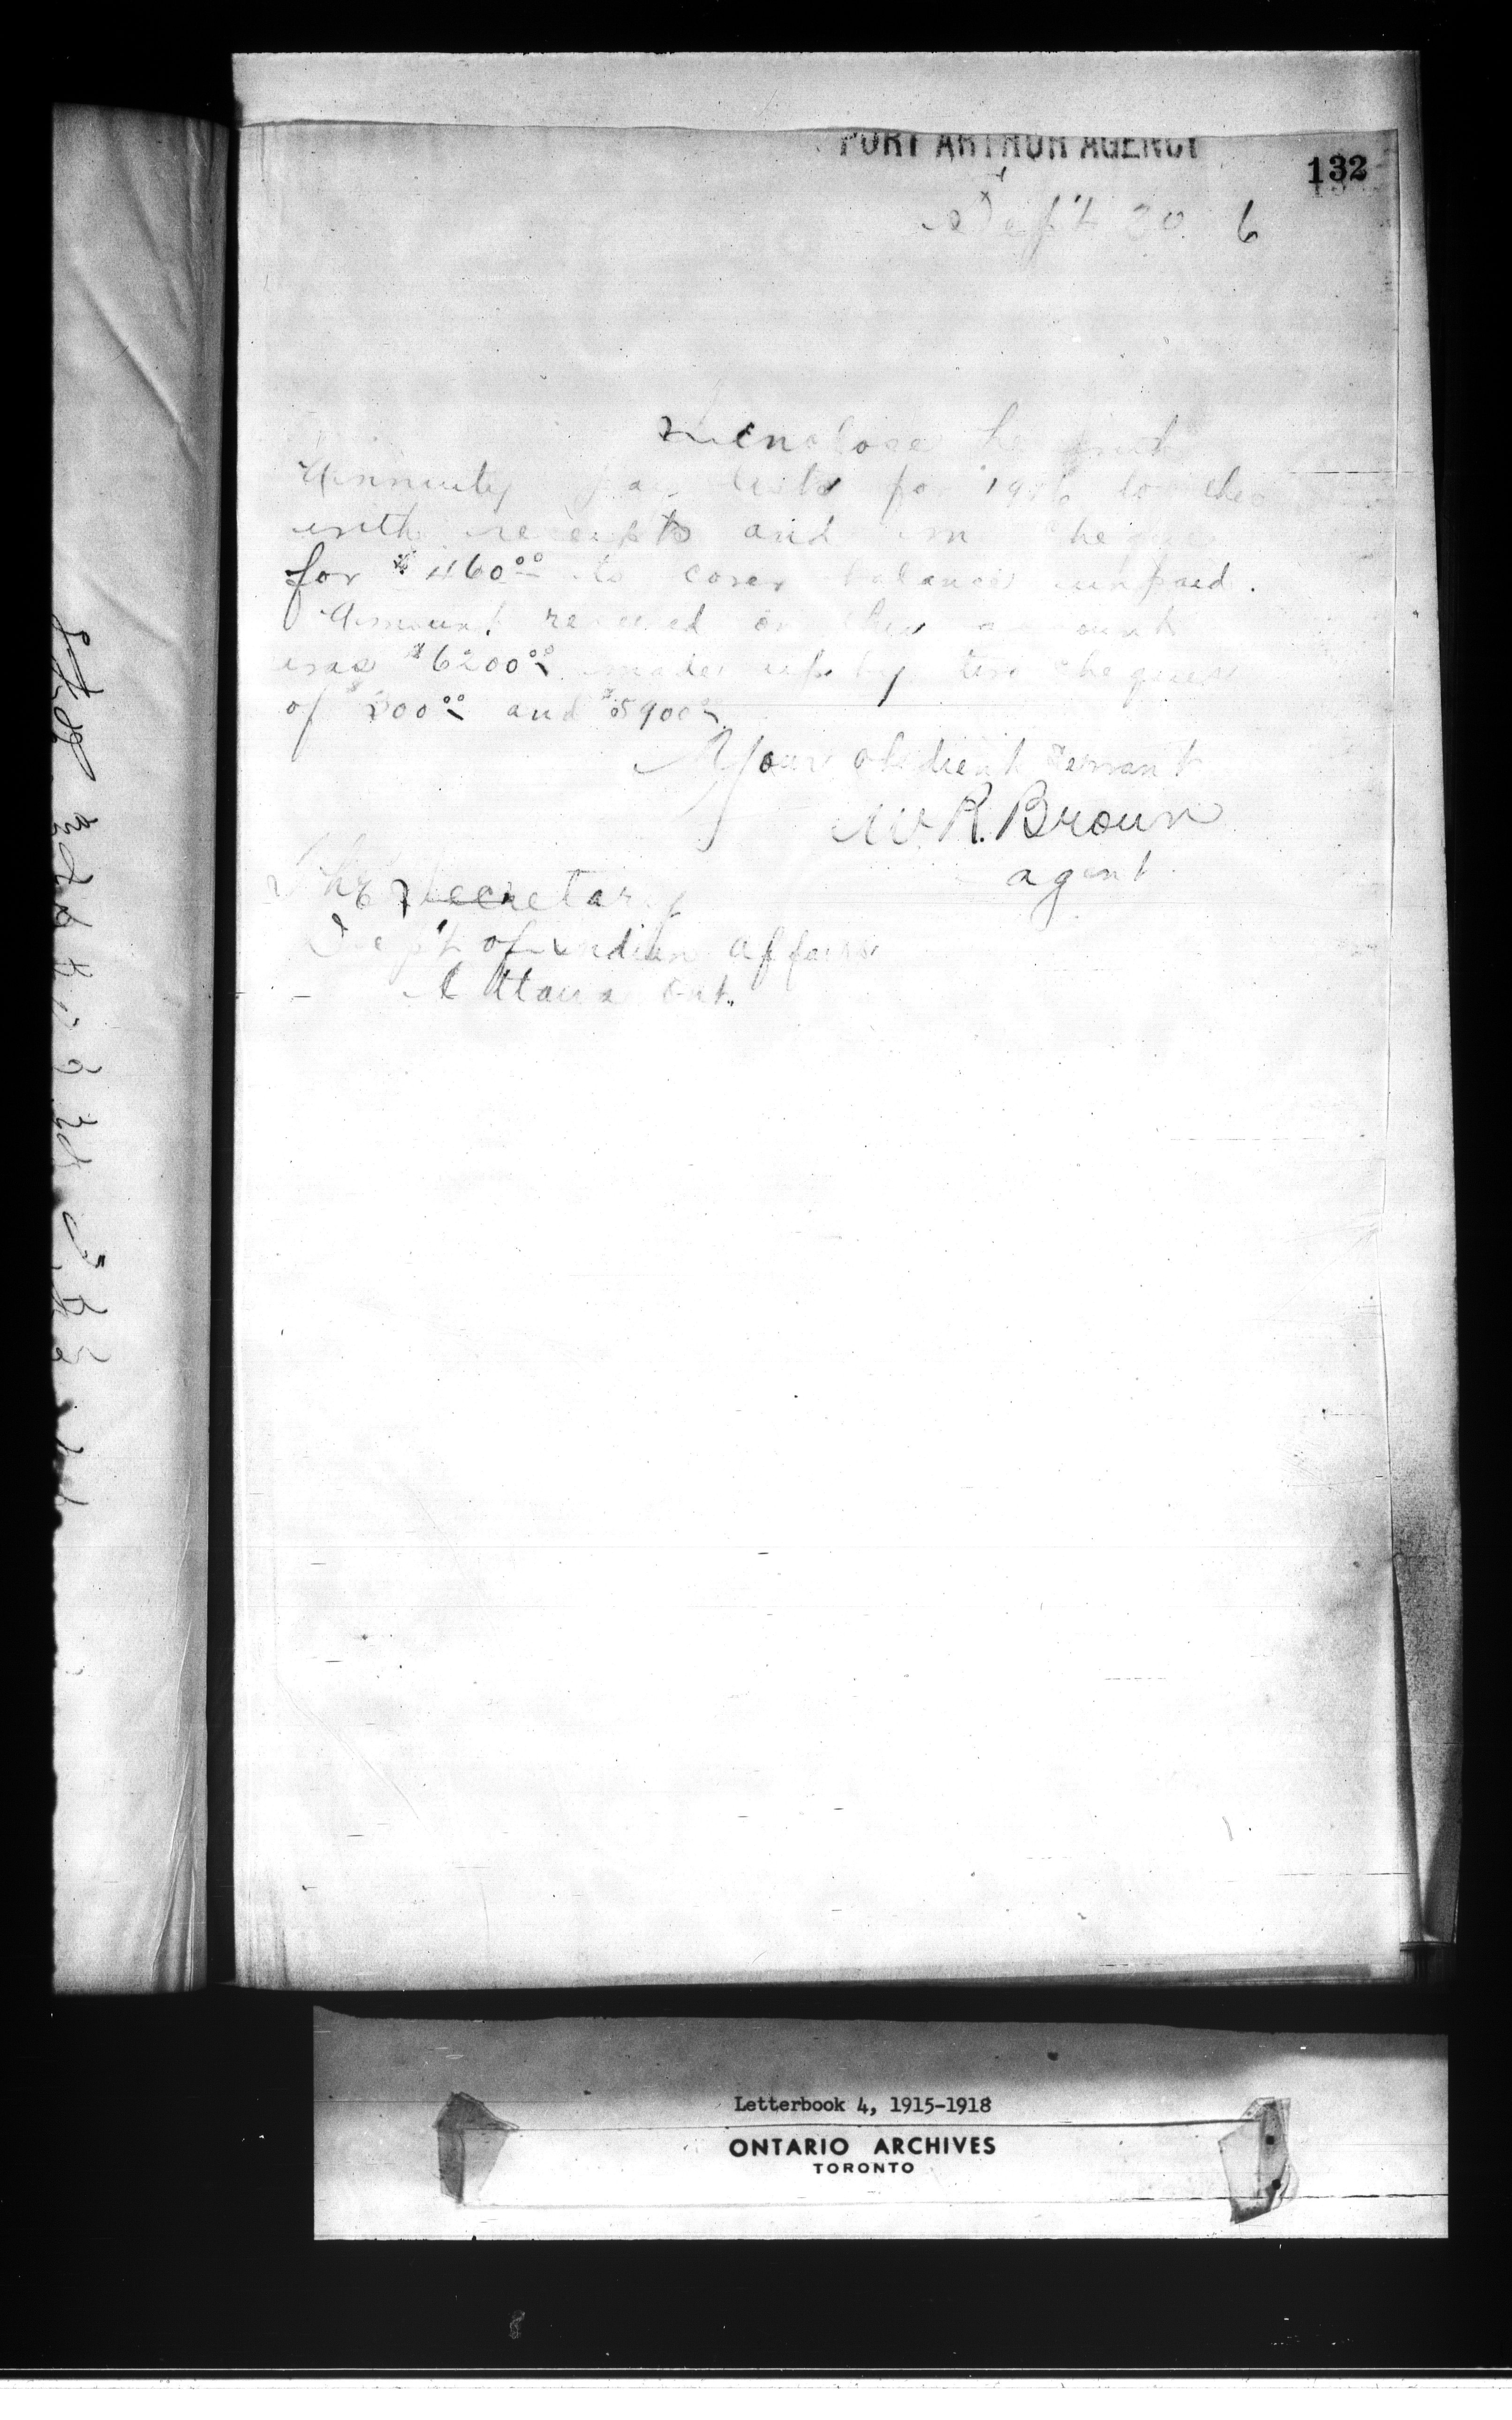 PORT ARTHUR AGENCY
132
Sept 30 6
I enclose herewith
Annuity Pay lists for 1916 together
with receipts and my cheque
for $460.00 to cover balance unpaid.
Amount received on this account
was $6200.00 made up by two cheques
of $300.00 and $5900.00
Your obedient servant
W.R. Brown
agent
The Secretary
Dep't of Indian Affairs
Ottawa Ont.
Letterbook 4, 1915-1918
ONTARIO ARCHIVES
TORONTO